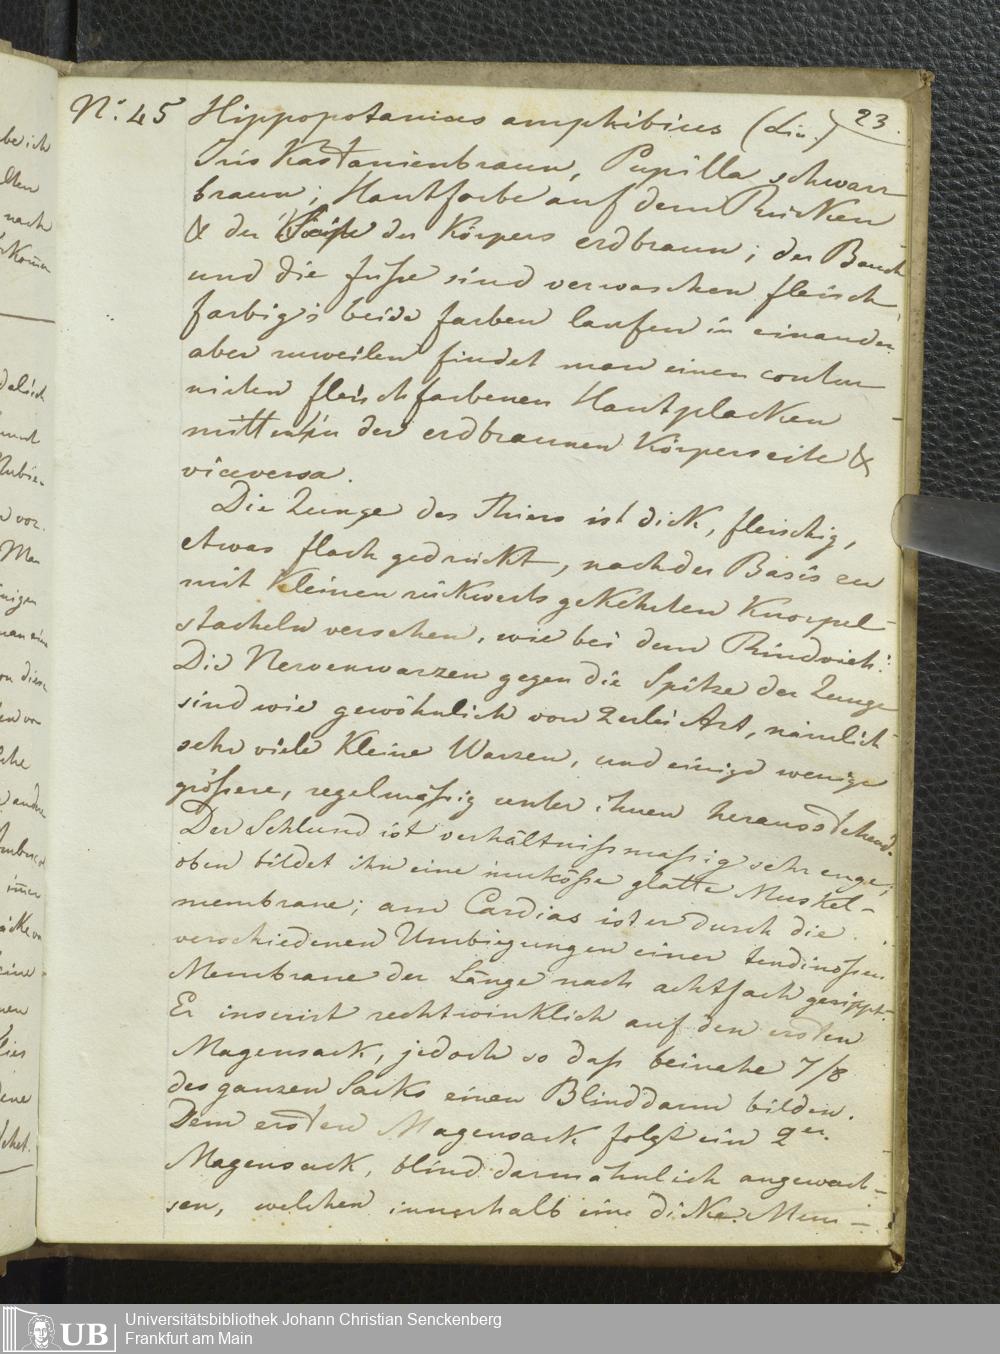 N.° 45 Hippopotamus amphibius (Lin.) 23.
Iris Kastanienbraun, Pupilla schwarz
braun; Hautfarbe auf dem Rücken
& der Seite des Körpers erdbraun; der Bauch
und die füße sind verwaschen fleisch
farbig; beide farben laufen in einander
aber zuweilen findet man einen contur
nirten fleischfarbenen Hautplacken
mitten in der erdbraunen Körperseite &
viceversa.
Die Zunge des Thiers ist dick, fleischig,
etwas flach gedrückt, nach der Basis zu
mit Kleinen rükwerts geKehrten Knorpel-
stacheln versehen, wie bei dem Rindvieh.
Die Nervenwarzen gegen die Spitze der Zunge
sind wie gewöhnlich von 2erlei Art, nämlich
sehr viele Kleine Warzen, und einige wenige
größere, regelmäßig unter ihnen herausstehend.
Der Schlund ist verhältnißmaßig sehr enge;
oben bildet ihn eine muköße glatte Muskel-
membrane; am Cardias ist er durch die
verschiedenen Umbiegungen einer tendinoßen
Membrane der Länge nach achtfach gerippt.
Er inserirt rechtwinklich auf den ersten
Magensack, jedoch so daß beinahe 7/8
des ganzen Sacks einen Blinddarm bilden.
Dem ersten Magensack folgt ein 2er
Magensack, blinddarmähnlich angewach-
sen, welchen innerhalb eine dicke Mem-
be ich
nach
vor.
eine
Universitätsbibliothek Johann Christian Senckenberg
Frankfurt am Main
UB